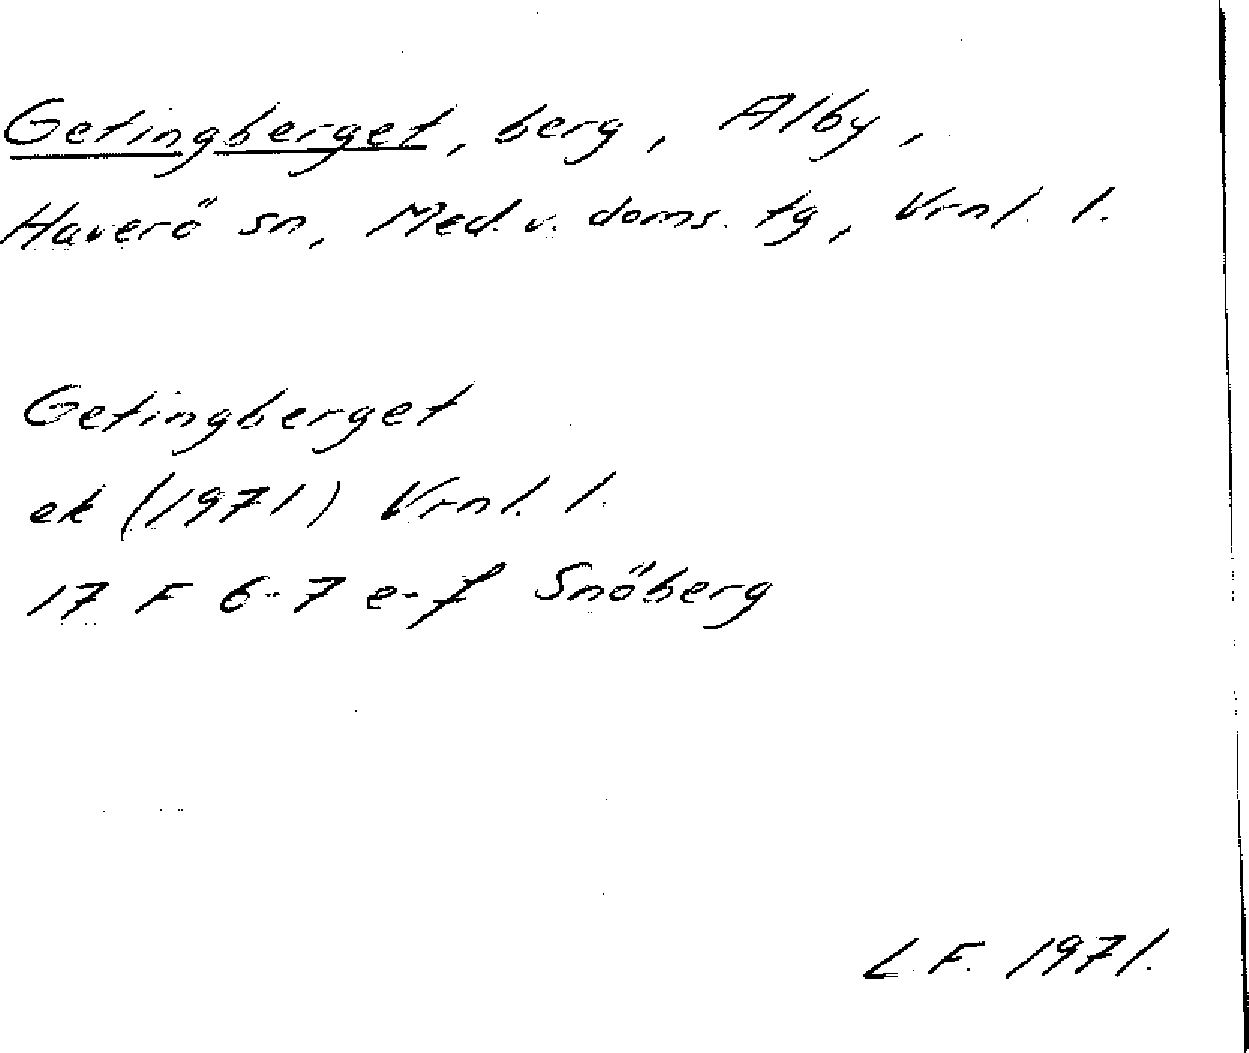 Getingberget, berg, Alby,
Haverö sn, Med. v. doms. tg, Vrnl. l.
Getingberget
ek (1971) Vrnl. l.
17 F 6-7 e-f Snöberg
L.F. 1971.